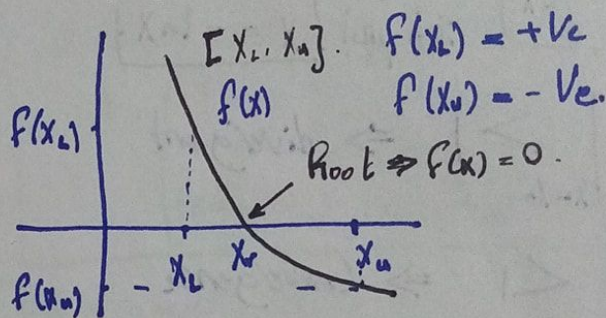 [X_L, X_u]. f(X_L) = +Ve
f(x) f(X_u) = -Ve.
f(X_L)
Root ⇒ f(x) = 0.
X_L X_r X_u
f(X_u)